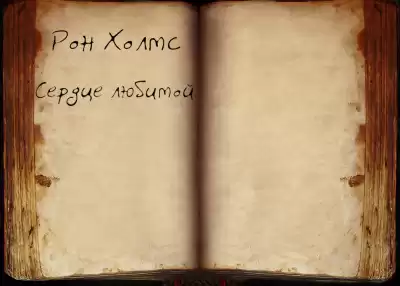 Рон Холмс
Сердце любимой